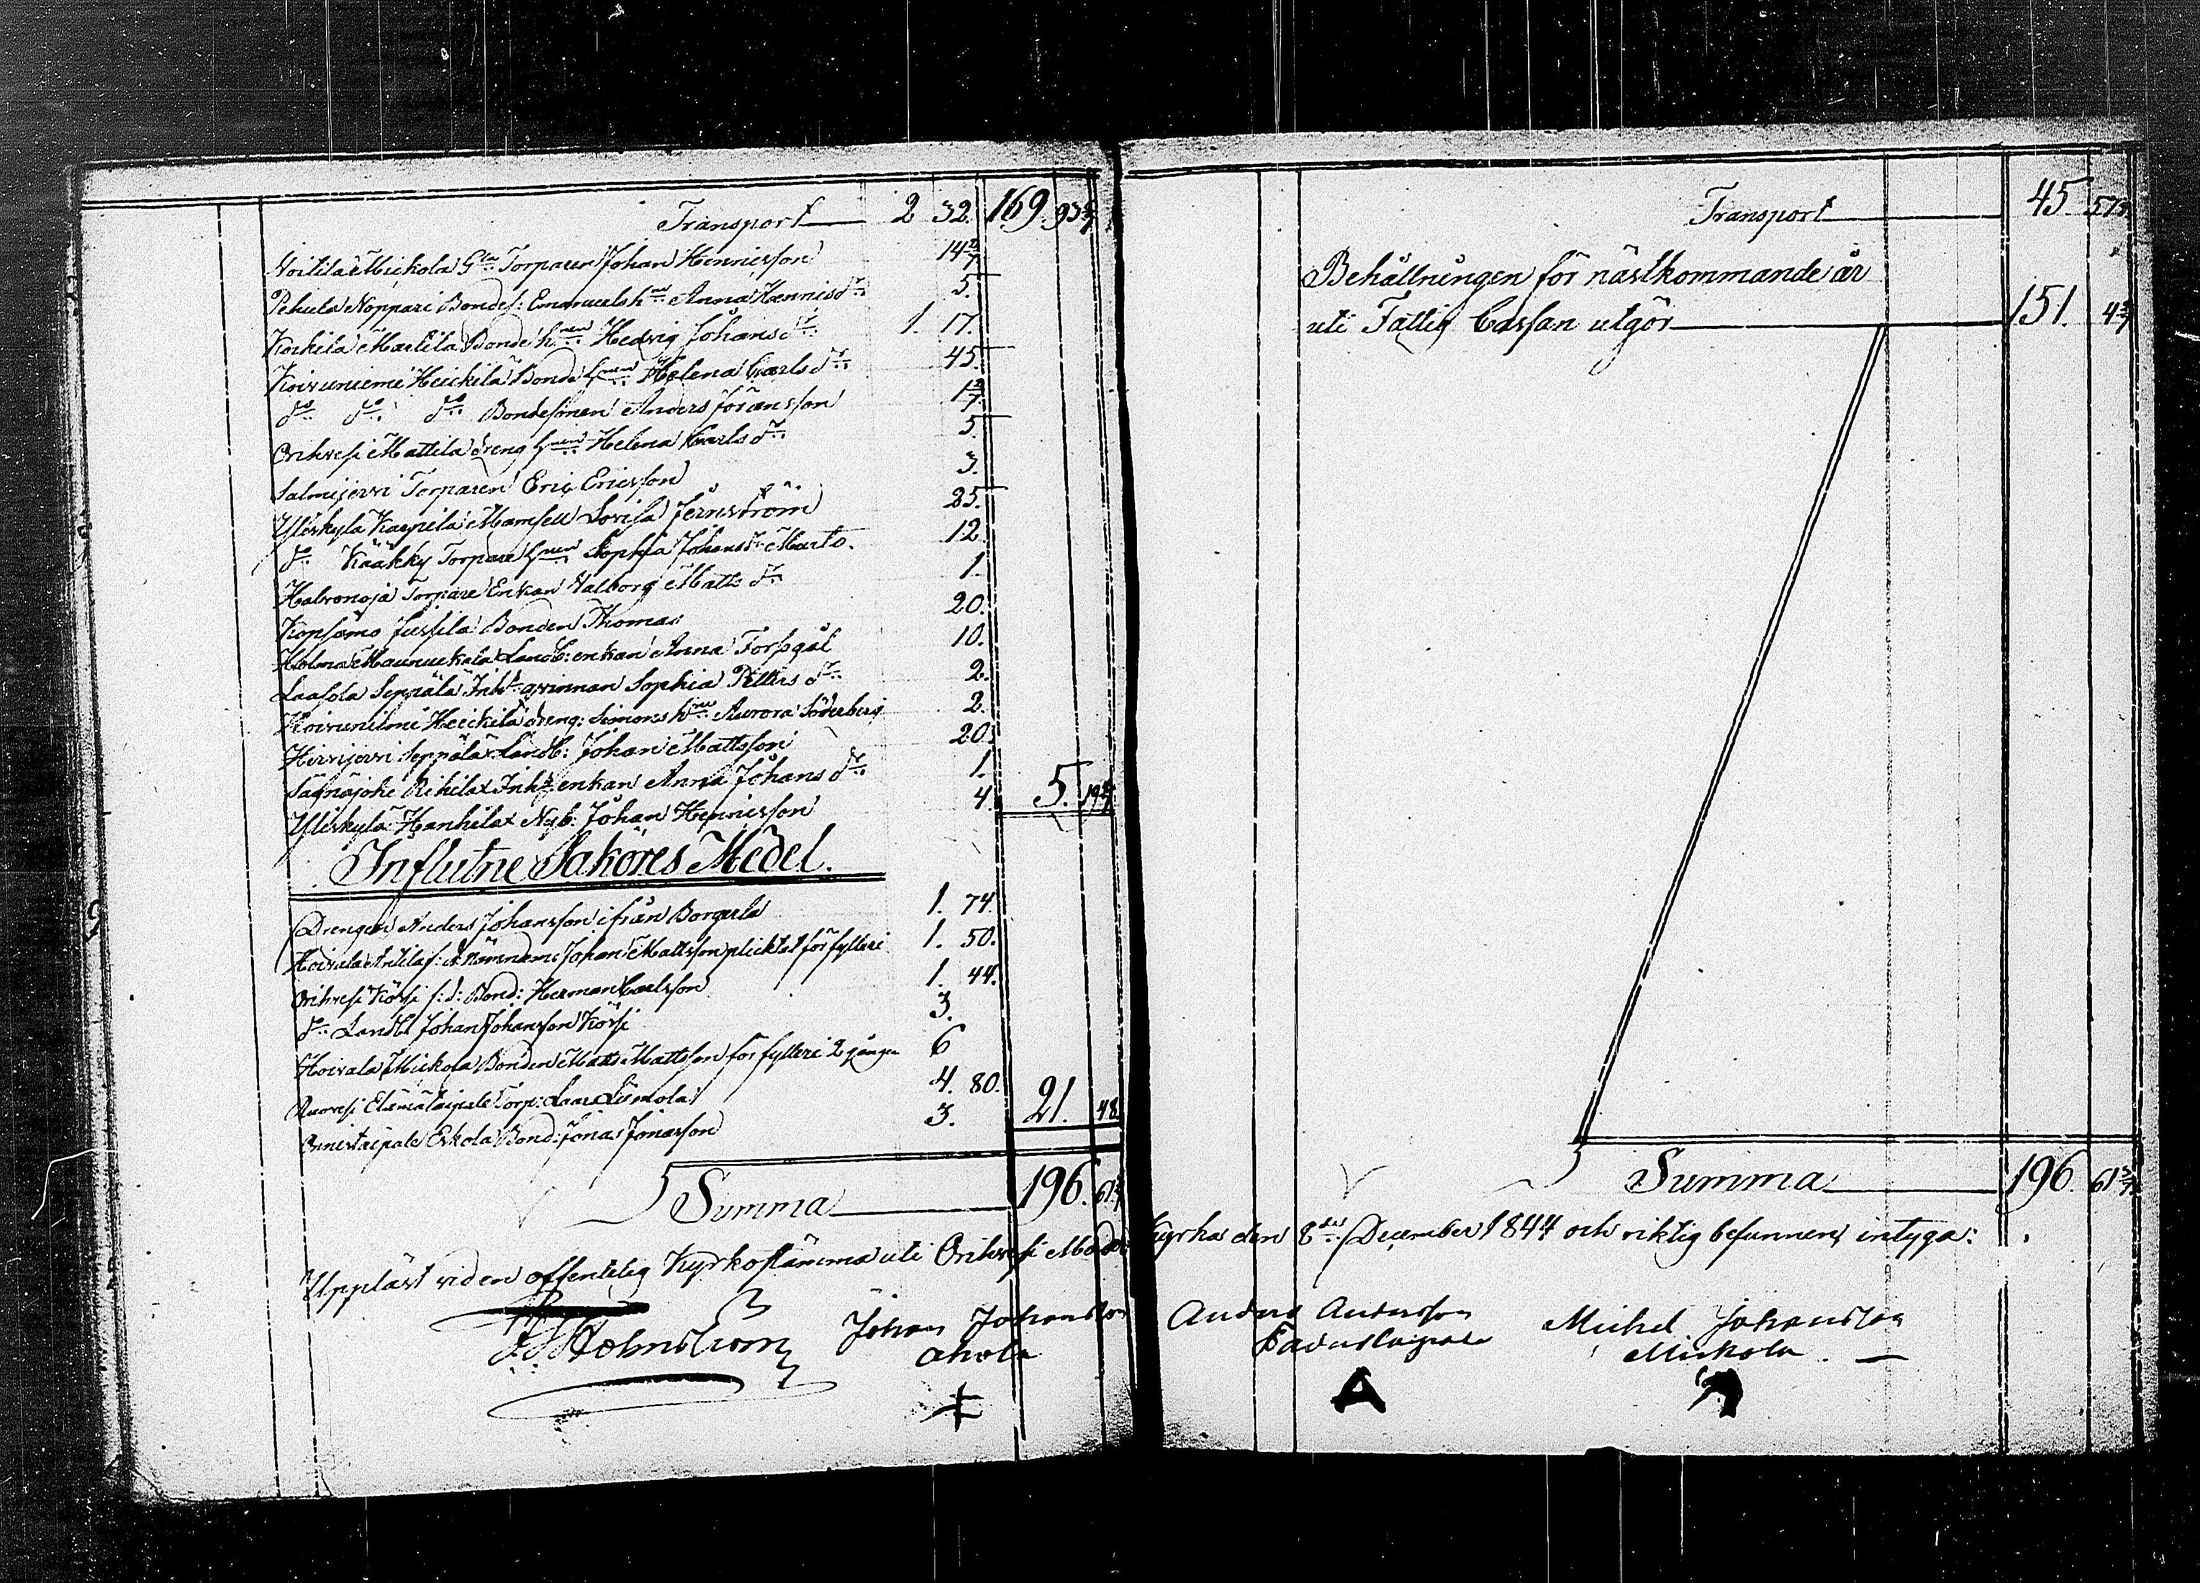 Transport 2 32. 169. 93 2/7
Voitila Mickola Gla Torparen Johan Henricsson 14 2/7
Pehula Noppari Bondes: Emanuels hru Anna Henrics dr 5.
Korkila Marlila Bonde hrun Hedvig Johans dr 1. 17.
Koivuniemi Heickilä Bonde hrun Helena Carls dr 45.
do do do Bondesonen Anders Göransson 1 2/7
Orihvesi Mattila dreng hrun Helena Carls dr 5.
Salmijervi Torparen Eric Ericsson 3.
Yliskylä Karpila Mamsell Lovisa Jernström 25.
do Kääkky Torpare hrun Sophia Johans dr Marto. 12.
Torpare Enkan Valborg Matts dr 1.
Kopsamo Jussila Bonden Thomas 20.
Holma Maunukala Landb: enkan Anna Forsgål 10.
Laasola Seppälä Inh: qvinnan Sophia Petters dr 2.
Koivuniemi Heickilä dreng: Simons hru Aurora Söderberg 2.
Hirvijervi Seppälä Landb: Johan Mattsson 20.
Säynäjoki Rihila Inh: enkan Anna Johans dr 1.
Yliskylä Hanhila Nyb: Johan Henricsson 4. 5. 19 4/7
Influtne Saköres Medel.
Drengen Anders Johansson ifrån Borgerla 1. 74.
Hoivala Antila f: d: Nämndem: Johan Mattsson pliktat för fylleri 1. 50.
Orihvesi Körsi f: d: Bond: Herman Carlsson 1. 44.
do Landb: Johan Johansson Körsi 3.
Hoivala Mickola Bonden Matts Mattsson för fylleri 2 gånger 6
Ruovesi Elämätaipale Torp: Lars 4. 80.
Onnistaipale Eskola Bond: Jonas Jonasson 3. 21. 48.
Summa 196. 61 5/7
Transport 45. 57 3/7
Behållningen för nästkommande år
uti Fattig Cassan utgör 151. 4 2/7
Summa 196. 61 5/7
Uppläst vid en offentelig Kyrkostämma uti Orihvesi Moder Kyrka den 8de December 1844 och riktig befunnen, intyga:
Holmström Johan Johansson Anders Andersson Michel Johansson
Ahola Mickola
A